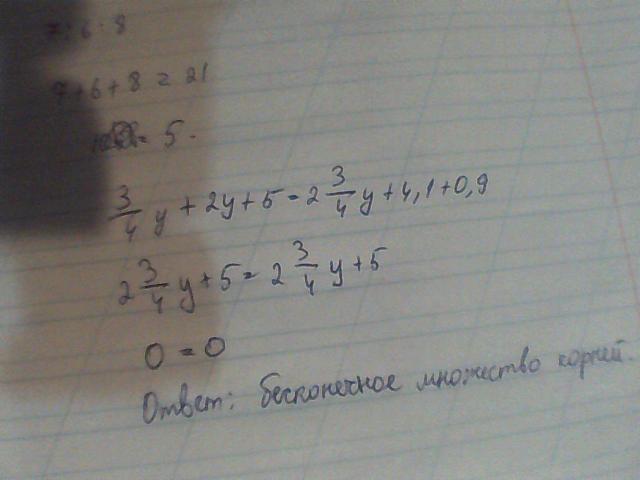 7:6:8
7+6+8=21
= 5.
3/4 y + 2y + 5 = 2 3/4 y + 4,1 + 0,9
2 3/4 y + 5 = 2 3/4 y + 5
0 = 0
Ответ: бесконечное множество корней.